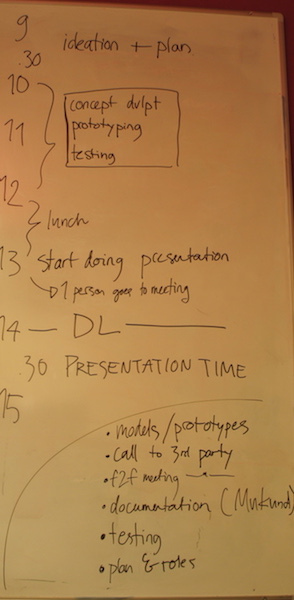 9
ideation + plan
.30
10
concept dvlpt
11 prototyping
testing
12
lunch
13 start doing presentation
1 person goes to meeting
14 — DL —
.30 PRESENTATION TIME
15
• models/prototypes
• call to 3rd party
• f2f meeting —•—
• documentation (Mukund)
• testing
• plan & roles